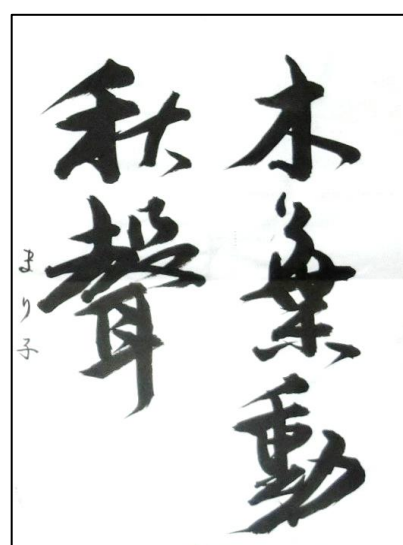 木葉動
秋聲
まり子